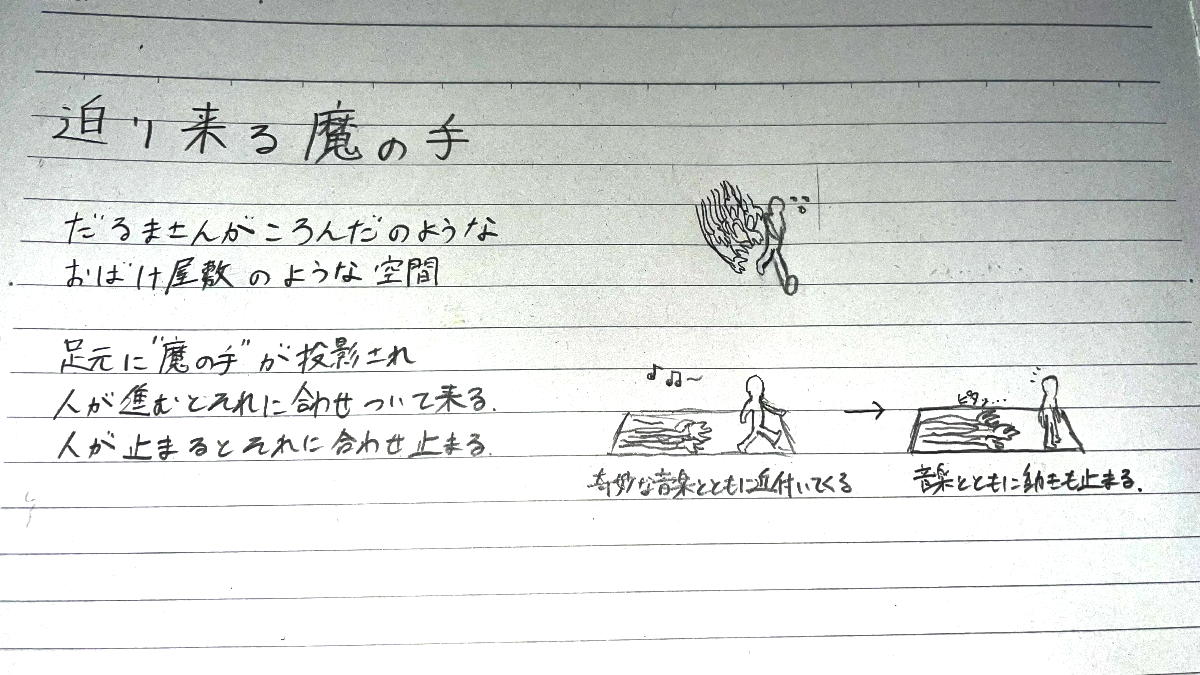 迫り来る魔の手
だるまさんがころんだのような
おばけ屋敷のような空間
足元に"魔の手"が投影され
人が進むとそれに合わせついて来る.
人が止まるとそれに合わせ止まる.
奇妙な音楽とともに近付いてくる
ピタッ…
音楽とともに動きも止まる.